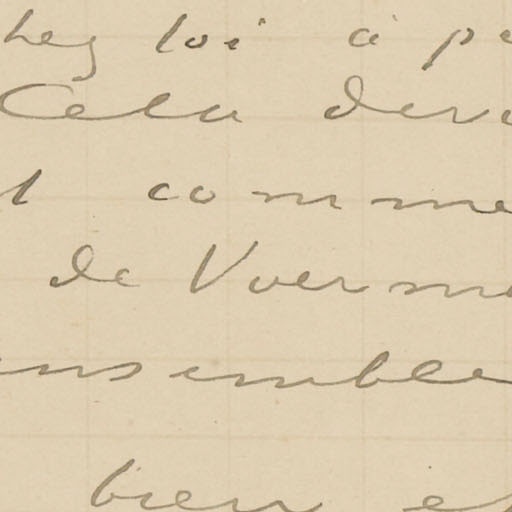 hez toi à pa
Cela deva
t comme
de Voerma
ensemble
bien et